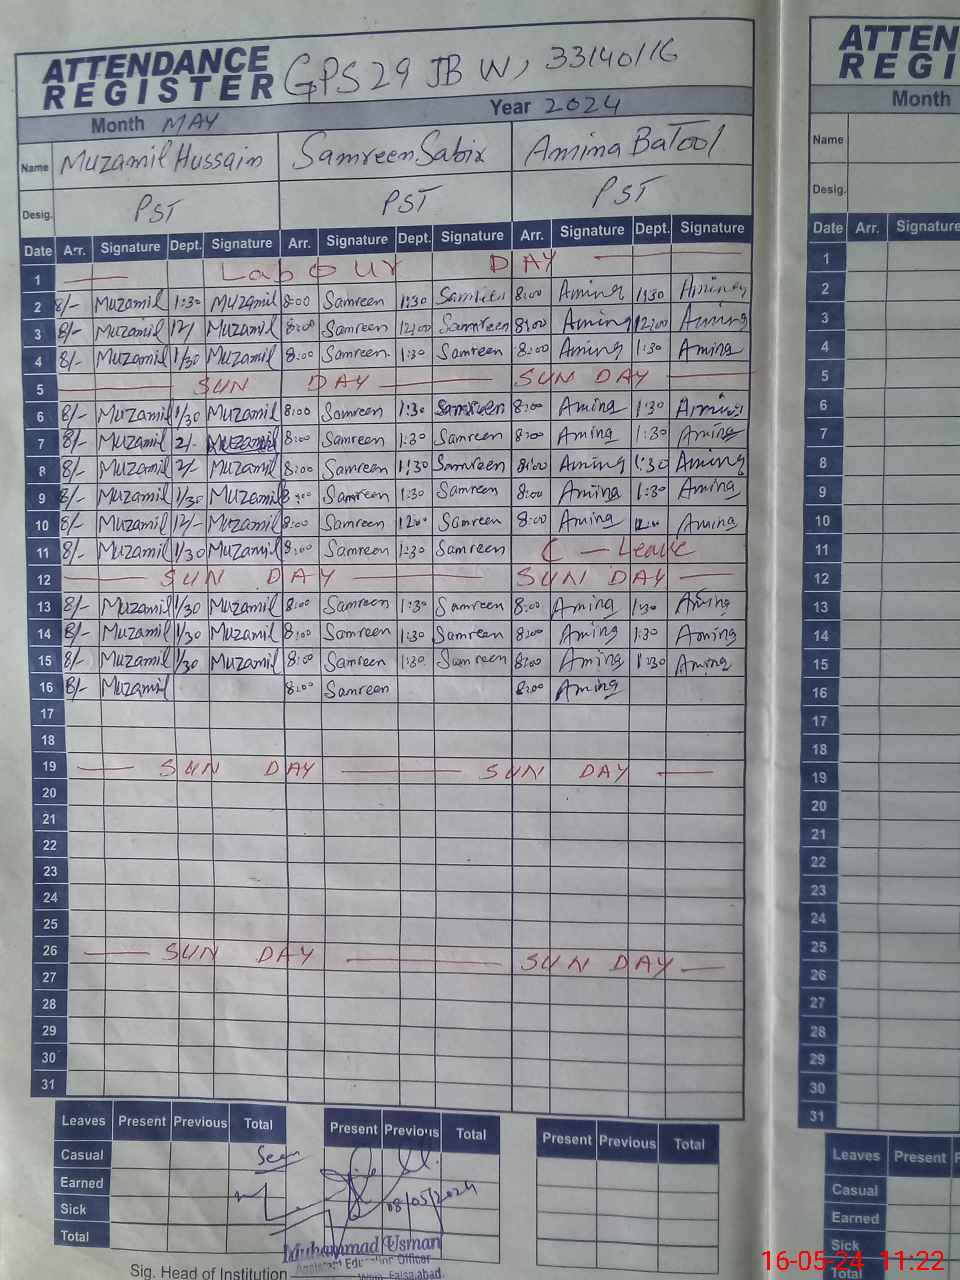 ATTENDANCE REGISTER GPS 29 JB W, 33140116
Month MAY Year 2024
Name Muzamil Hussain Samreen Sabir Amina BaTool
Desig. PST PST PST
Date Arr. Signature Dept. Signature Arr. Signature Dept. Signature Arr. Signature Dept. Signature
1 Labour DAY
2 8/- Muzamil 1:30 Muzamil 8:00 Samreen 1:30 Samreen 8:00 Amina 1:30 Amina
3 8/- Muzamil 12/ Muzamil 8:00 Samreen 12:00 Samreen 8:00 Amina 12:00 Amina
4 8/- Muzamil 1/30 Muzamil 8:00 Samreen 1:30 Samreen 8:00 Amina 1:30 Amina
5 SUN DAY SUN DAY
6 8/- Muzamil 1/30 Muzamil 8:00 Samreen 1:30 Samreen 8:00 Amina 1:30 Amina
7 8/- Muzamil 2/- Muzamil 8:00 Samreen 1:30 Samreen 8:00 Amina 1:30 Amina
8 8/- Muzamil 2/- Muzamil 8:00 Samreen 1:30 Samreen 8:00 Amina 1:30 Amina
9 8/- Muzamil 1/30 Muzamil 8:00 Samreen 1:30 Samreen 8:00 Amina 1:30 Amina
10 8/- Muzamil 12/- Muzamil 8:00 Samreen 12:00 Samreen 8:00 Amina 12:00 Amina
11 8/- Muzamil 1/30 Muzamil 8:00 Samreen 1:30 Samreen C - Leave
12 SUN DAY SUN DAY
13 8/- Muzamil 1/30 Muzamil 8:00 Samreen 1:30 Samreen 8:00 Amina 1:30 Amina
14 8/- Muzamil 1/30 Muzamil 8:00 Samreen 1:30 Samreen 8:00 Amina 1:30 Amina
15 8/- Muzamil 1/30 Muzamil 8:00 Samreen 1:30 Samreen 8:00 Amina 1:30 Amina
16 8/- Muzamil 8:00 Samreen 8:00 Amina
17
18
19 SUN DAY SUN DAY
20
21
22
23
24
25
26 SUN DAY SUN DAY
27
28
29
30
31
Leaves Present Previous Total Present Previous Total Present Previous Total
Casual Seen
Earned
Sick 08/05/2024
Total
Muhammad Usman
Officer
Sig. Head of Institution Faisalabad.
ATTEN
REGI
Month
Name
Desig.
Date Arr. Signature
1
2
3
4
5
6
7
8
9
10
11
12
13
14
15
16
17
18
19
20
21
22
23
24
25
26
27
28
29
30
31
Leaves Present P
Casual
Earned
Sick
Total
16-05-24 11:22